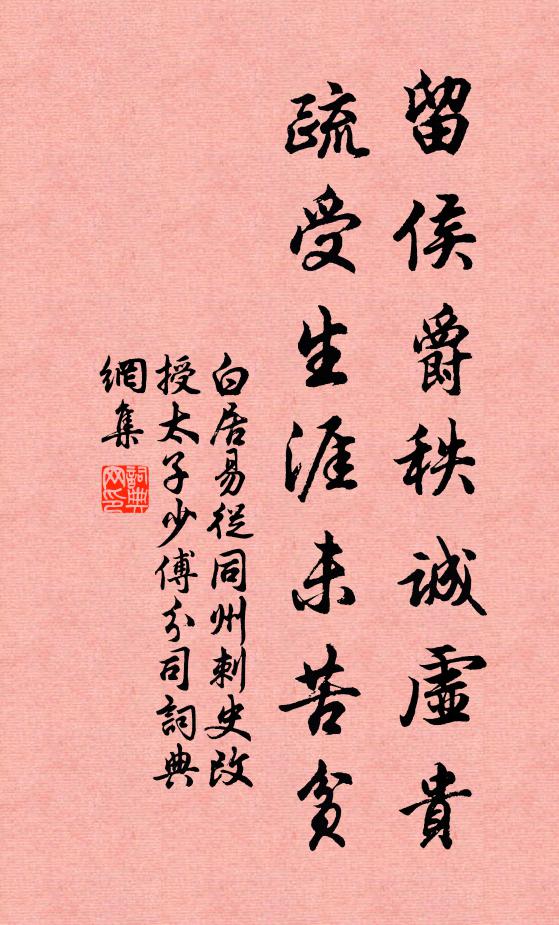 留侯爵秩誠虛貴
疏受生涯未苦貧
白居易從同州刺史改
授太子少傅分司詞典
網集
詞典
网印